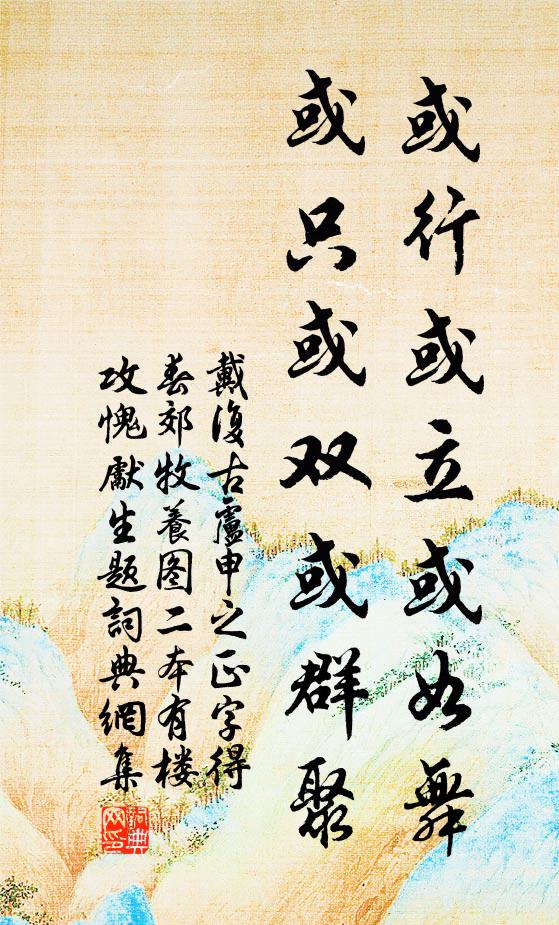 或行或立或如舞
或只或双或群聚
戴復古盧申之正字得
春郊牧養图二本有楼
攻愧獻生題詞典網集
詞典
网印